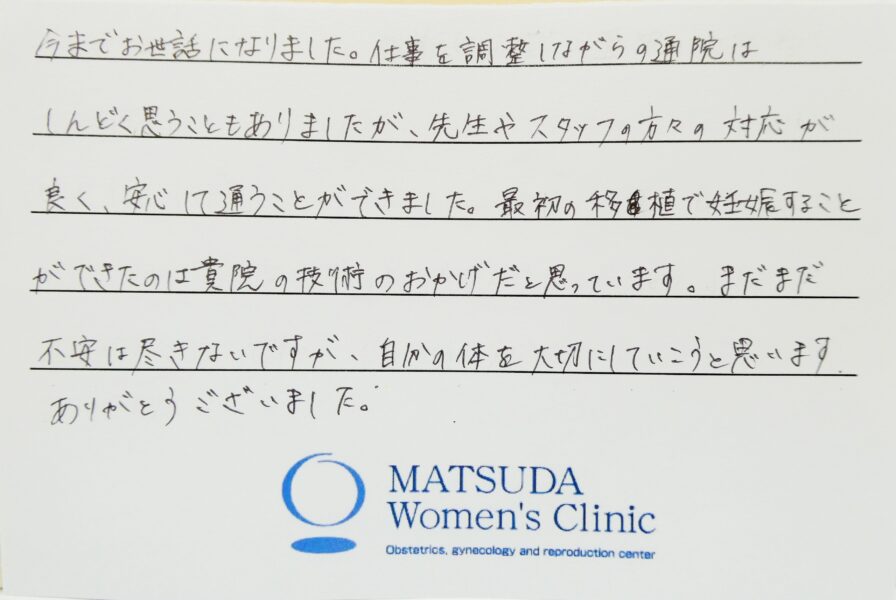 今までお世話になりました。仕事を調整しながらの通院は
しんどく思うこともありましたが、先生やスタッフの方々の対応が
良く、安心して通うことができました。最初の移植で妊娠すること
ができたのは貴院の技術のおかげだと思っています。まだまだ
不安は尽きないですが、自分の体を大切にしていこうと思います.
ありがとうございました。
MATSUDA
Women's Clinic
Obstetrics, gynecology and reproduction center